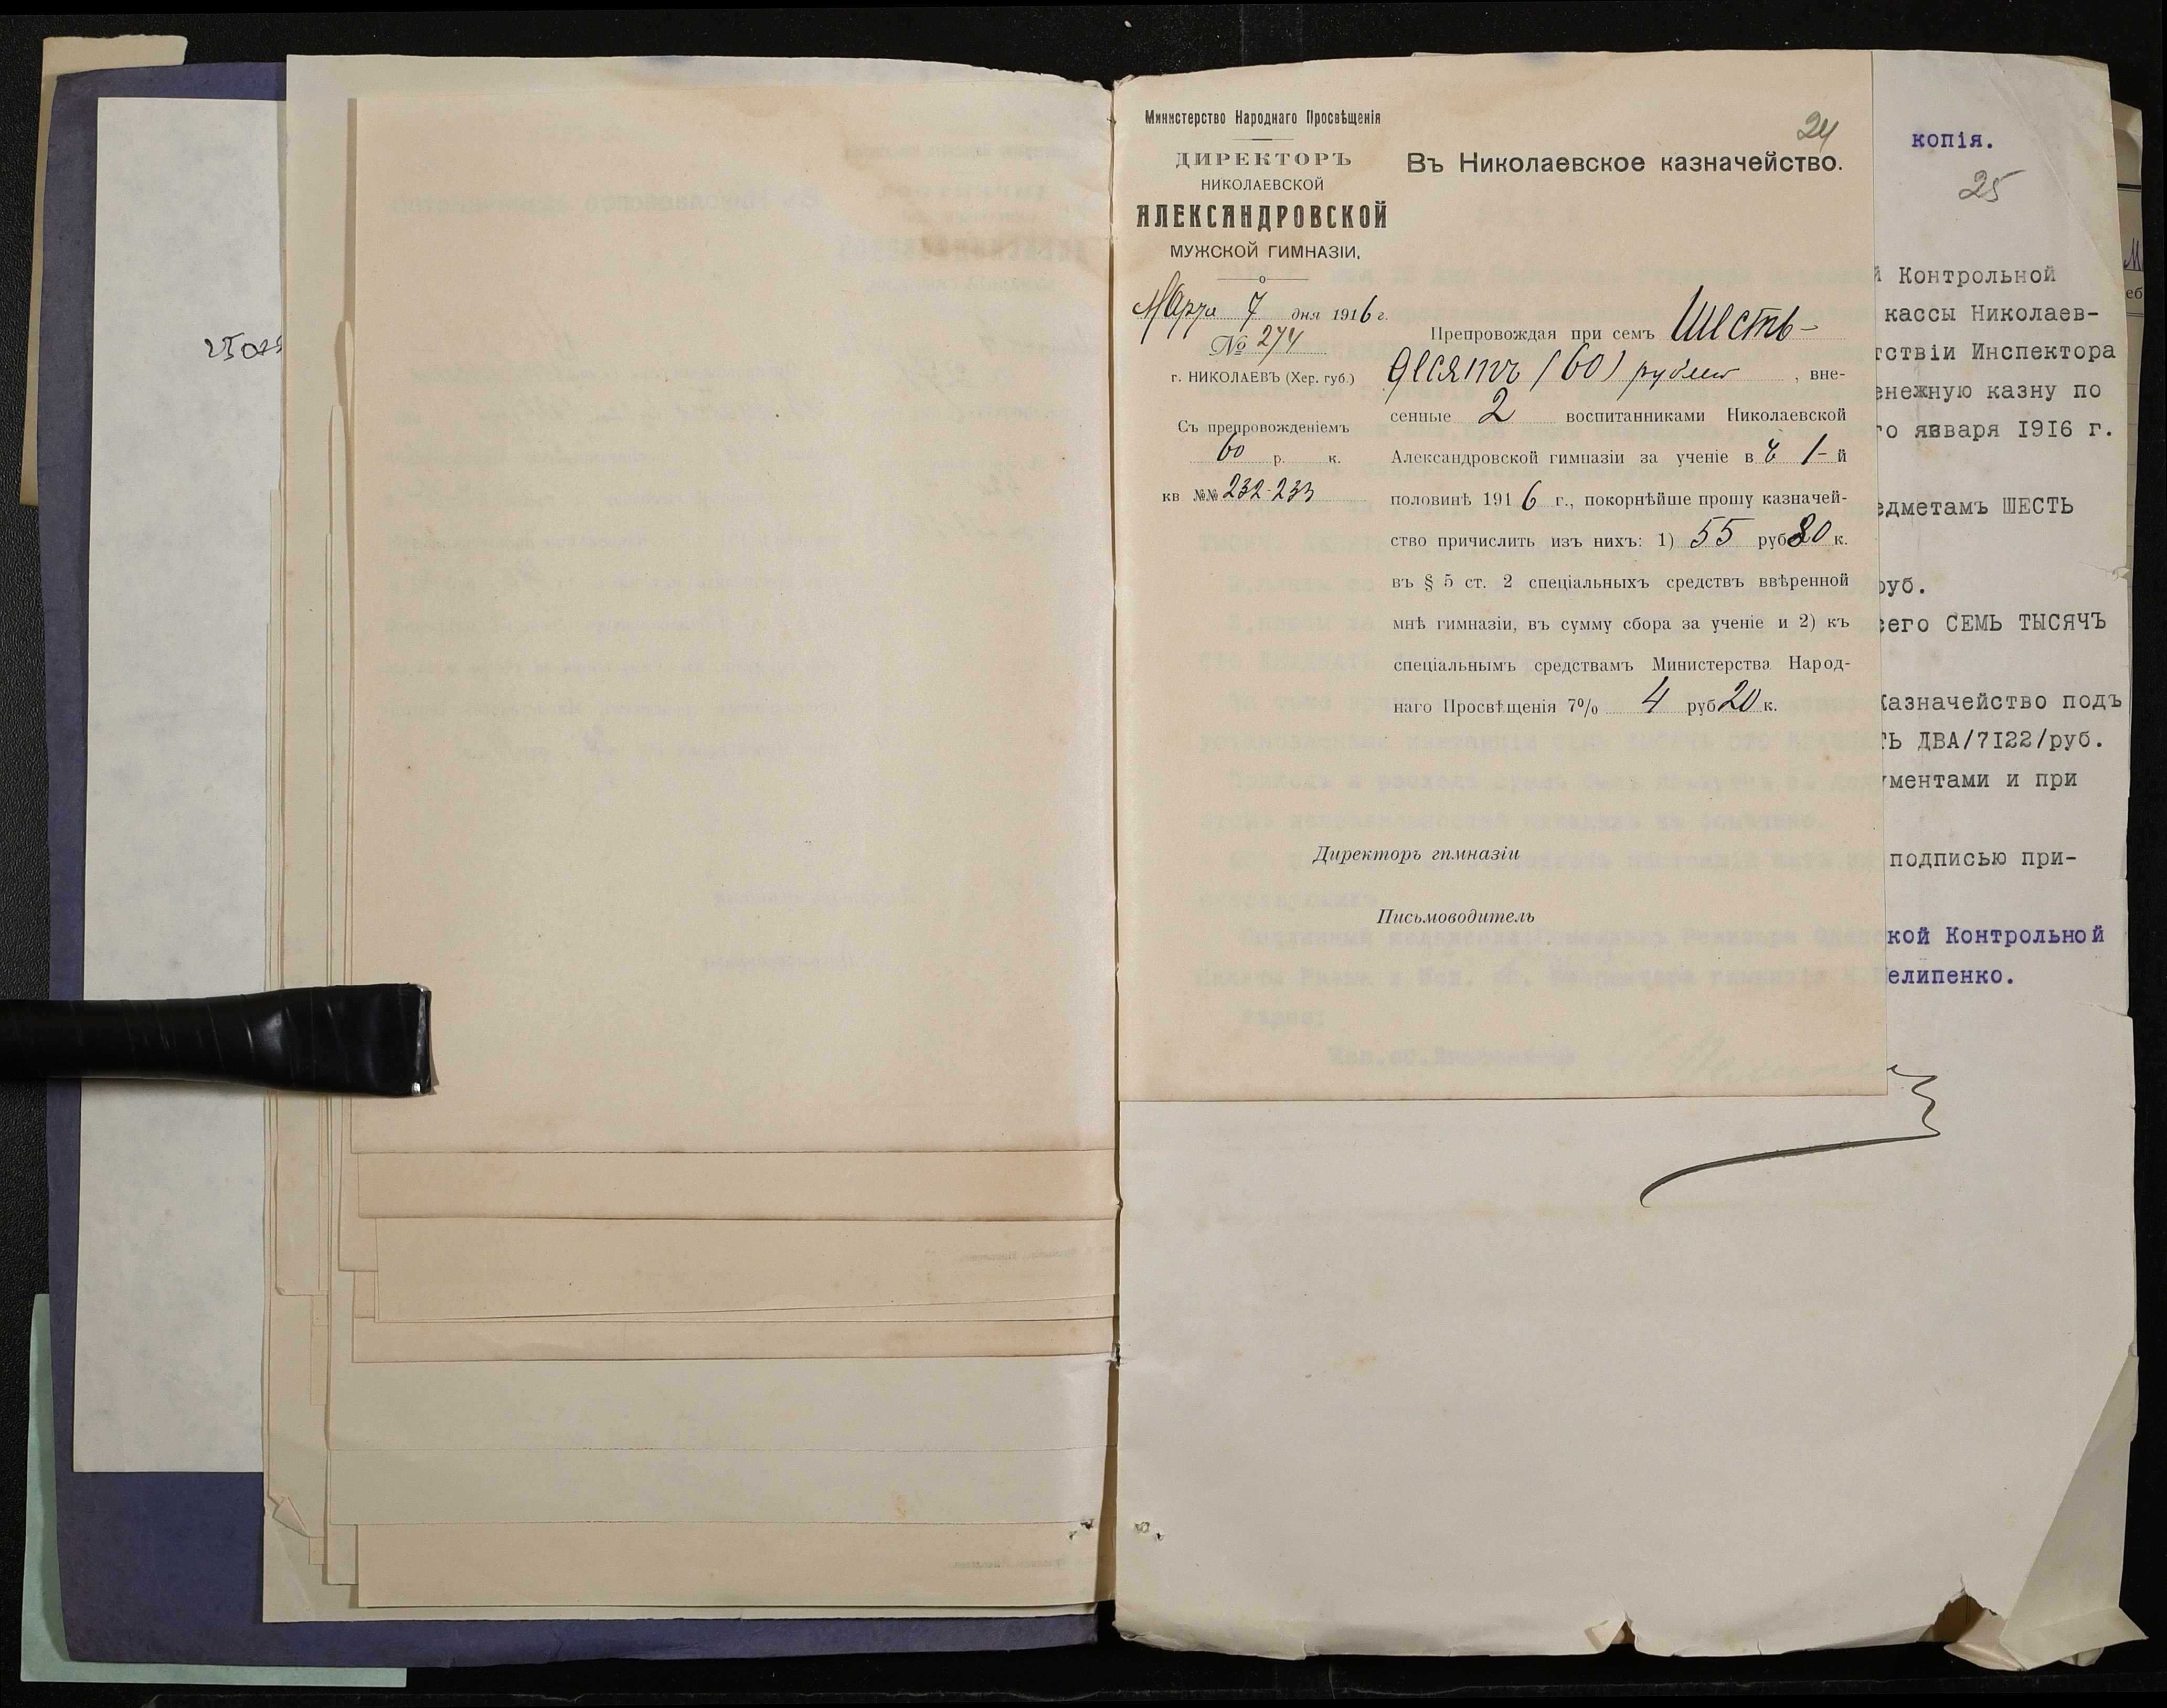 Министерство Народнаго Просвѣщенія
ДИРЕКТОРЪ
НИКОЛАЕВСКОЙ
АЛЕКСАНДРОВСКОЙ
МУЖСКОЙ ГИМНАЗІИ,
Марта 7 дня 1916 г.
№ 274
г. НИКОЛАЕВЪ (Хер. губ.)
Съ препровожденіемъ
60 р. к.
кв №№ 232-233
24
Въ Николаевское казначейство.
Препровождая при семъ Шесть-
десятъ (60) рублей, вне-
сенные 2 воспитанниками Николаевской
Александровской гимназіи за ученіе в 1-й
половинѣ 1916 г., покорнѣйше прошу казначей-
ство причислить изъ нихъ: 1) 55 руб 80 к.
въ § 5 ст. 2 спеціальныхъ средствъ ввѣренной
мнѣ гимназіи, въ сумму сбора за ученіе и 2) къ
спеціальнымъ средствамъ Министерства Народ-
наго Просвѣщенія 7% 4 руб 20 к.
Директоръ гимназіи
Письмоводитель
копія.
25
й Контрольной
кассы Николаев-
тствіи Инспектора
енежную казну по
го января 1916 г.
едметамъ ШЕСТЬ
руб.
сего СЕМЬ ТЫСЯЧЪ
Казначейство подъ
ТЬ ДВА/7122/руб.
ументами и при
подписью при-
кой Контрольной
елипенко.